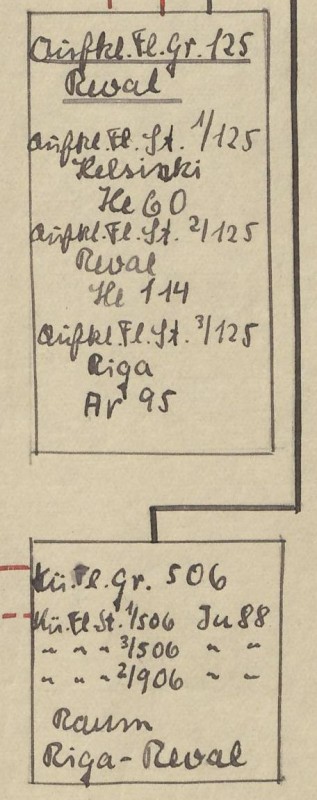 Aufkl. Fl. Gr. 125
Reval
Aufkl. Fl. St. 1/125
Helsinki
He 60
Aufkl. Fl. St. 2/125
Reval
He 114
Aufkl. Fl. St. 3/125
Riga
Ar 95
Kü. Fl. Gr. 506
Kü. Fl. St. 1/506 Ju 88
" " " 3/506 " "
" " " 2/906 " "
Raum
Riga-Reval